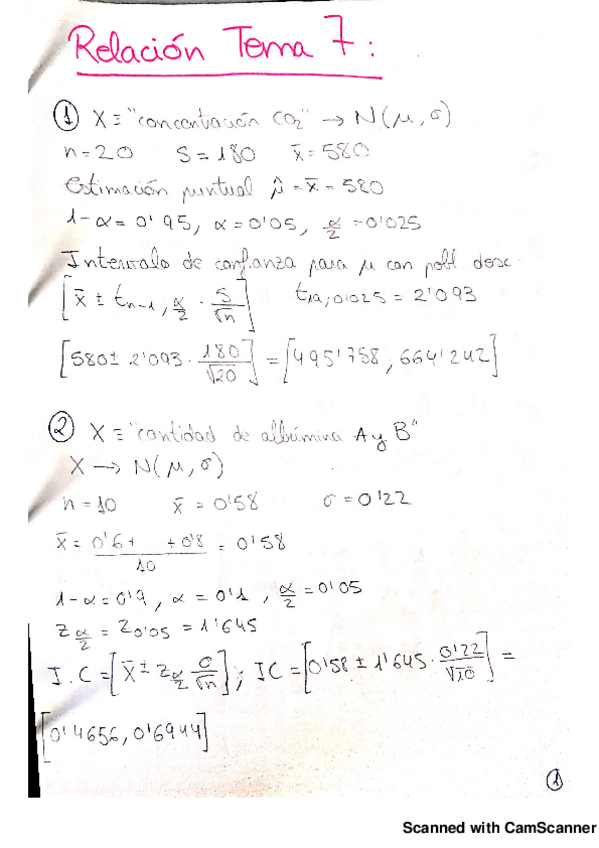 Relación Tema 7:
① X ≡ "concentración CO₂" → N(μ, σ)
n = 20 S = 180 x̄ = 580
Estimación puntual μ̂ = x̄ = 580
1-α = 0'95, α = 0'05, α/2 = 0'025
Intervalo de confianza para μ con pobl. desc.
[x̄ ± t n-1, α/2 · S/√n] t19; 0'025 = 2'093
[580 ± 2'093 · 180/√20] = [495'758, 664'242]
② X ≡ "cantidad de albúmina A y B"
X → N(μ, σ)
n = 10 x̄ = 0'58 σ = 0'22
x̄ = 0'6 + + 0'8 / 10 = 0'58
1-α = 0'9, α = 0'1, α/2 = 0'05
Z α/2 = Z 0'05 = 1'645
I.C = [x̄ ± Z α/2 σ/√n]; IC = [0'58 ± 1'645 · 0'22/√10] =
[0'4656, 0'6944]
①
Scanned with CamScanner